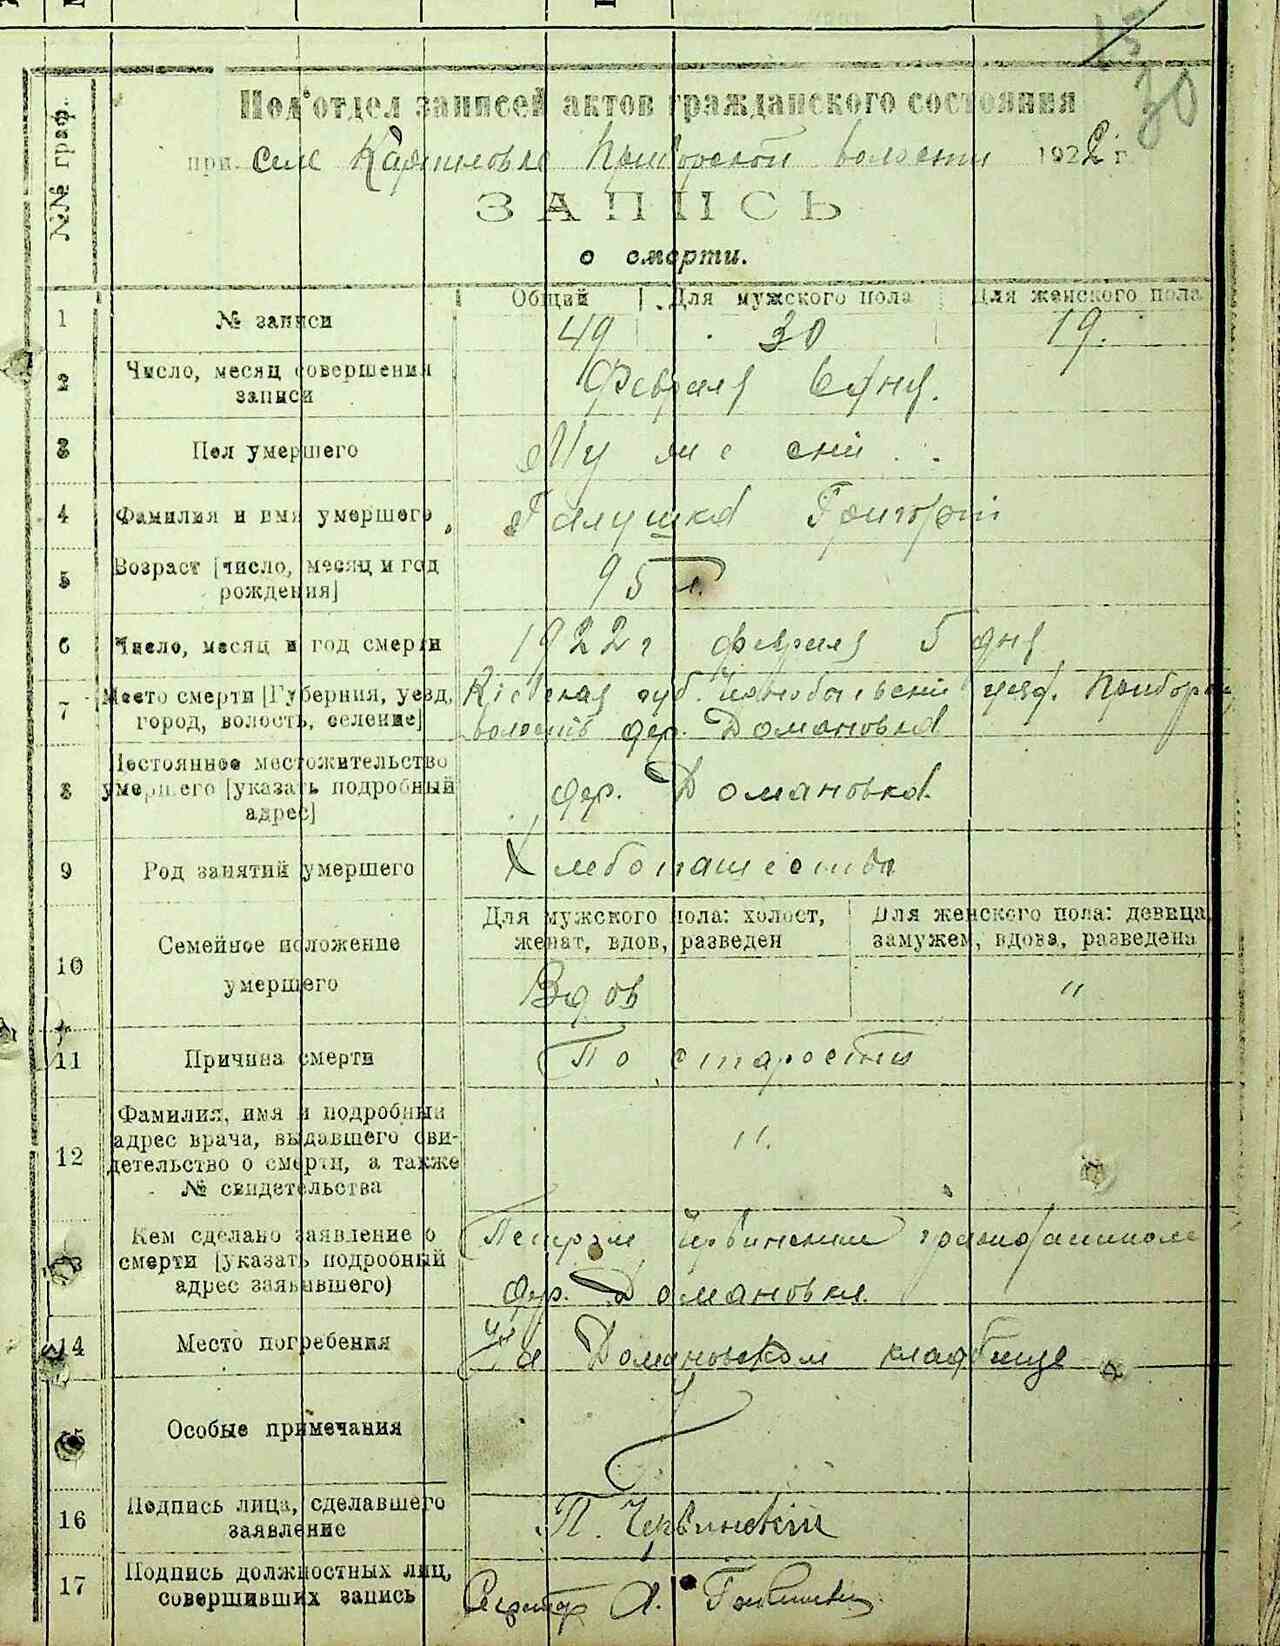 13
30
№№ граф.
Подотдел записей актов гражданского состояния
при селе волости 1922 г.
ЗАПИСЬ
о смерти.
Общий Для мужского пола Для женского пола
1 № записи 49 30 19.
2 Число, месяц совершения записи Февраля 6 дня.
3 Пол умершего Мужеский
4 Фамилия и имя умершего Галушка Григорій
5 Возраст [число, месяц и год рождения] 95 л.
6 Число, месяц и год смерти 1922 г февраля 5 дня
7 Место смерти [Губерния, уезд, Кіевская губ. уезд.
город, волость, селение] волость дер. Домановка
8 Постоянное местожительство
умершего [указать подробный дер. Домановка.
адрес]
9 Род занятий умершего Хлебопашество
Для мужского пола: холост, Для женского пола: девица,
женат, вдов, разведен замужем, вдова, разведена
10 Семейное положение
умершего Вдов "
11 Причина смерти По старости
12 Фамилия, имя и подробный
адрес врача, выдавшего сви-
детельство о смерти, а также ".
№ свидетельства
13 Кем сделано заявление о Петром Червинским
смерти [указать подробный
адрес заявившего) дер. Домановки.
14 Место погребения На Домановском кладбище
15 Особые примечания
16 Подпись лица, сделавшего
заявление П. Червинскій
17 Подпись должностных лиц,
совершивших запись А.